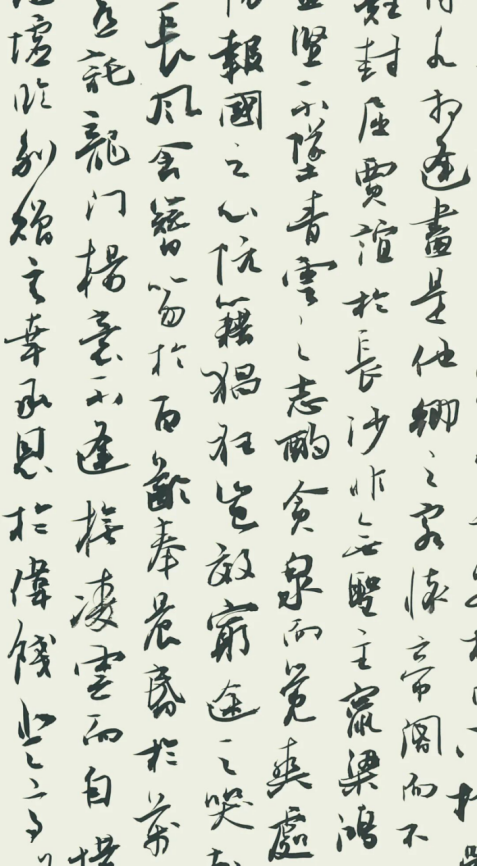 水相逢盡是他鄉之客懷帝閽而不
難封屈賈誼於長沙非無聖主竄梁鴻
益堅不墜青雲之志酌貪泉而覺爽處
報國之心阮籍猖狂豈效窮途之哭
長風舍簪笏於百齡奉晨昏於萬
託龍門楊意不逢撫凌雲而自惜
墟臨別贈言幸承恩於偉餞